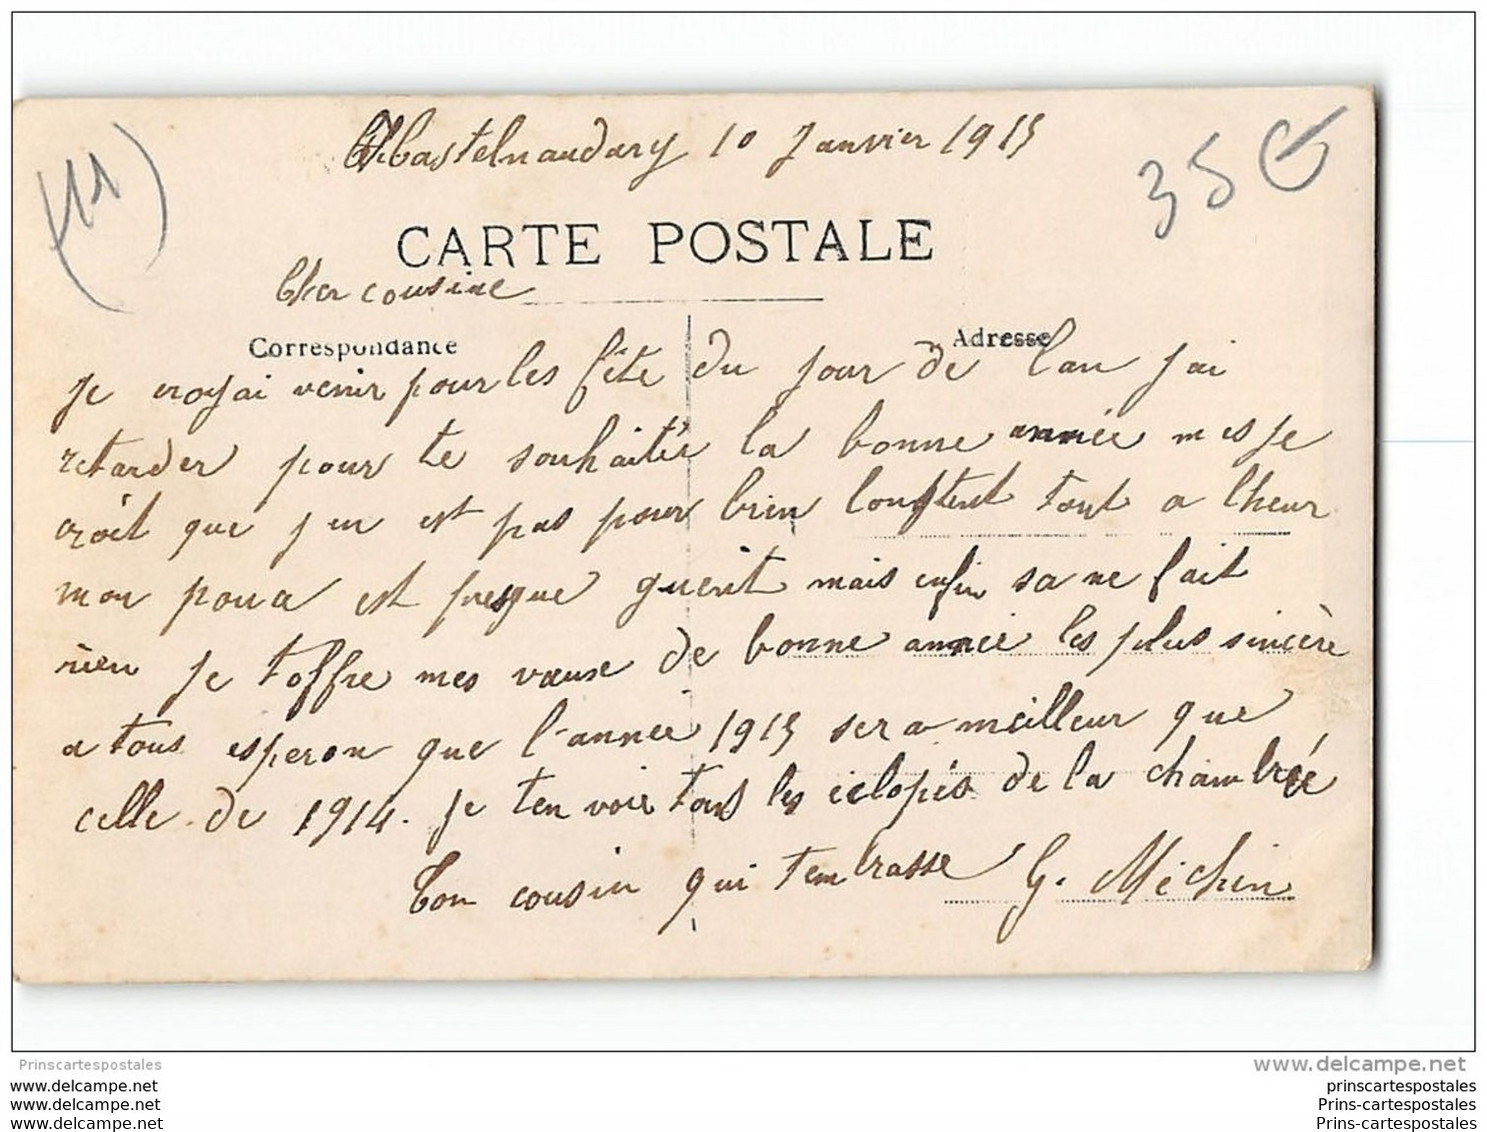 Castelnaudary 10 Janvier 1915
(11)
35 €
CARTE POSTALE
Cher cousine
Correspondance
Adresse
je croyai venir pour les fête du jour de lan jai
retarder pour te souhaiter la bonne année mes je
croit que j en est pas pour bien lonftent tout a lheur
mon poua est presque guerit mais enfin sa ne fait
rien je toffre mes vœuse de bonne année les plus sincère
a tous esperon que l'année 1915 sera meilleur que
celle de 1914. je ten voie tous les eclopés de la chambrée
Ton cousin qui tembrasse G. Méchin
Prinscartespostales
www.delcampe.net
www.delcampe.net
prinscartespostales
www.delcampe.net
Prins-cartespostales
www.delcampe.net
Prins-cartespostales